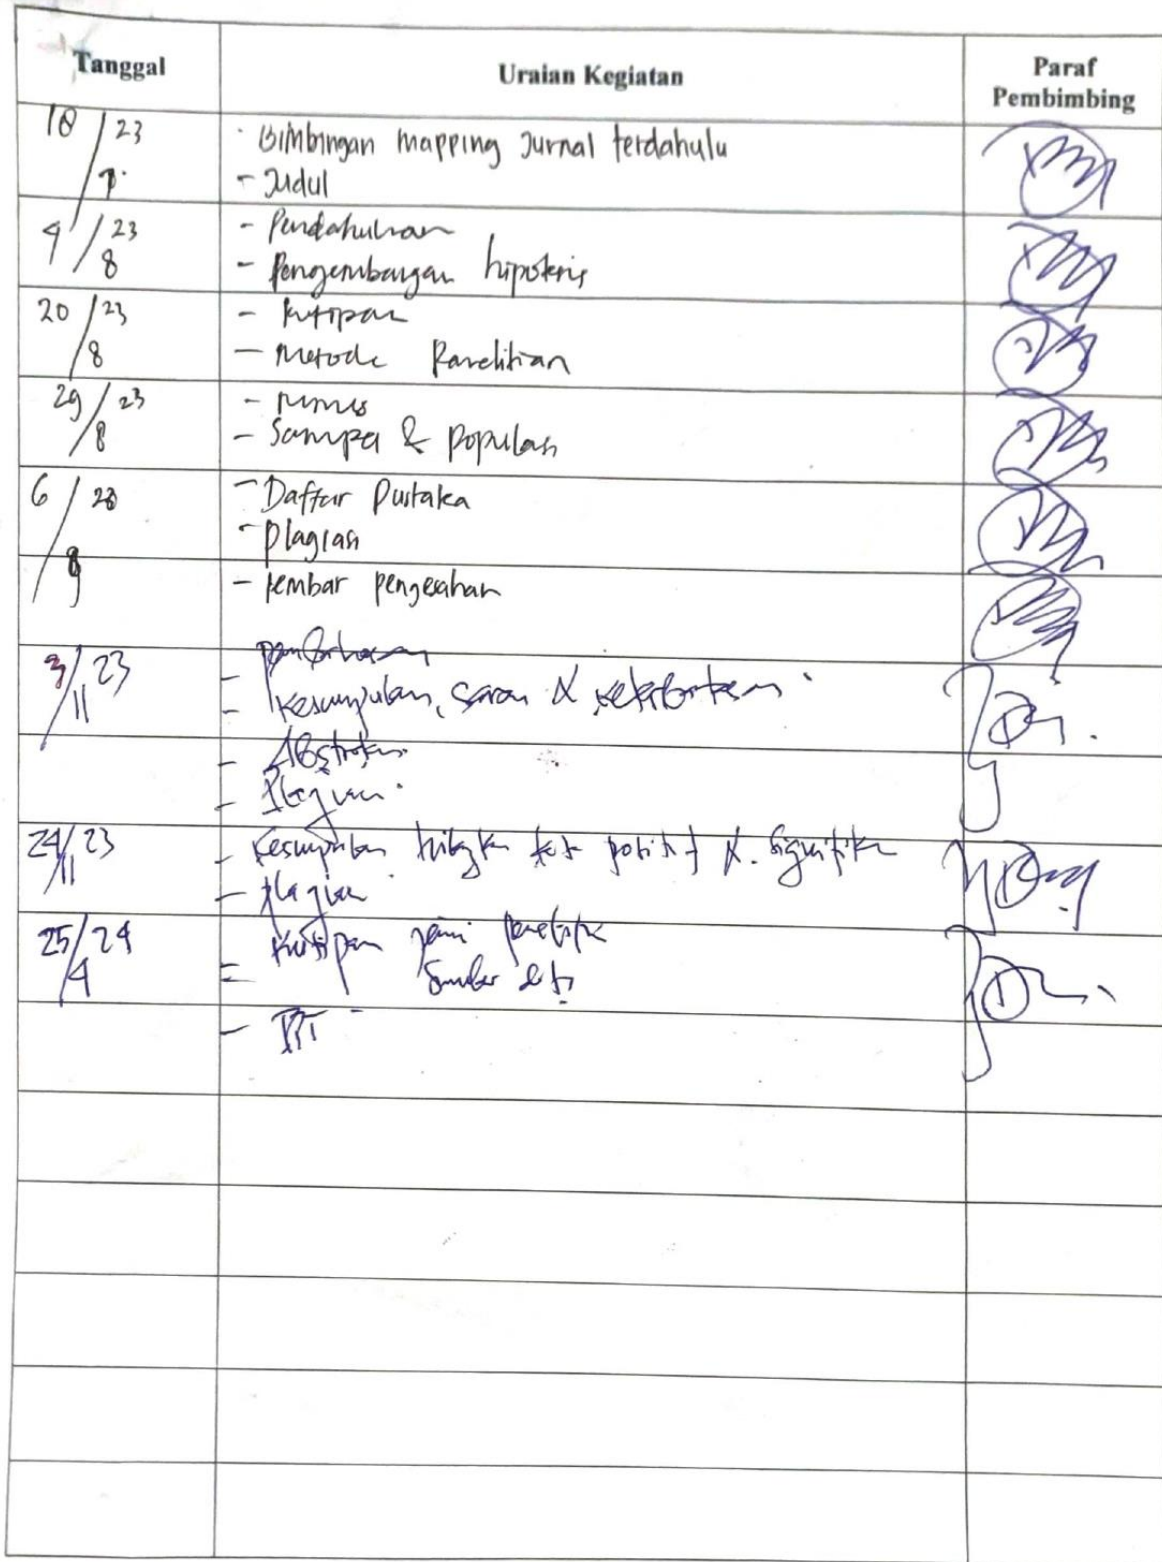 Tanggal Uraian Kegiatan Paraf Pembimbing
18/7 23 - Bimbingan mapping Jurnal terdahulu
- Judul
4/8 23 - Pendahuluan
- Pengembangan hipotesis
20/8 23 - kutipan
- Metode Penelitian
29/8 23 - rumus
- Sampel & Populasi
6/9 23 - Daftar Pustaka
- Plagiasi
- lembar pengesahan
3/11 23 - pembahasan
- kesimpulan, saran & keterbatasan
- Abstrak
- Plagiasi
24/11 23 - kesimpulan positif signifikan
- plagiasi
25/4 24 - kutipan jenis penelitian
= Sumber data
- PPT